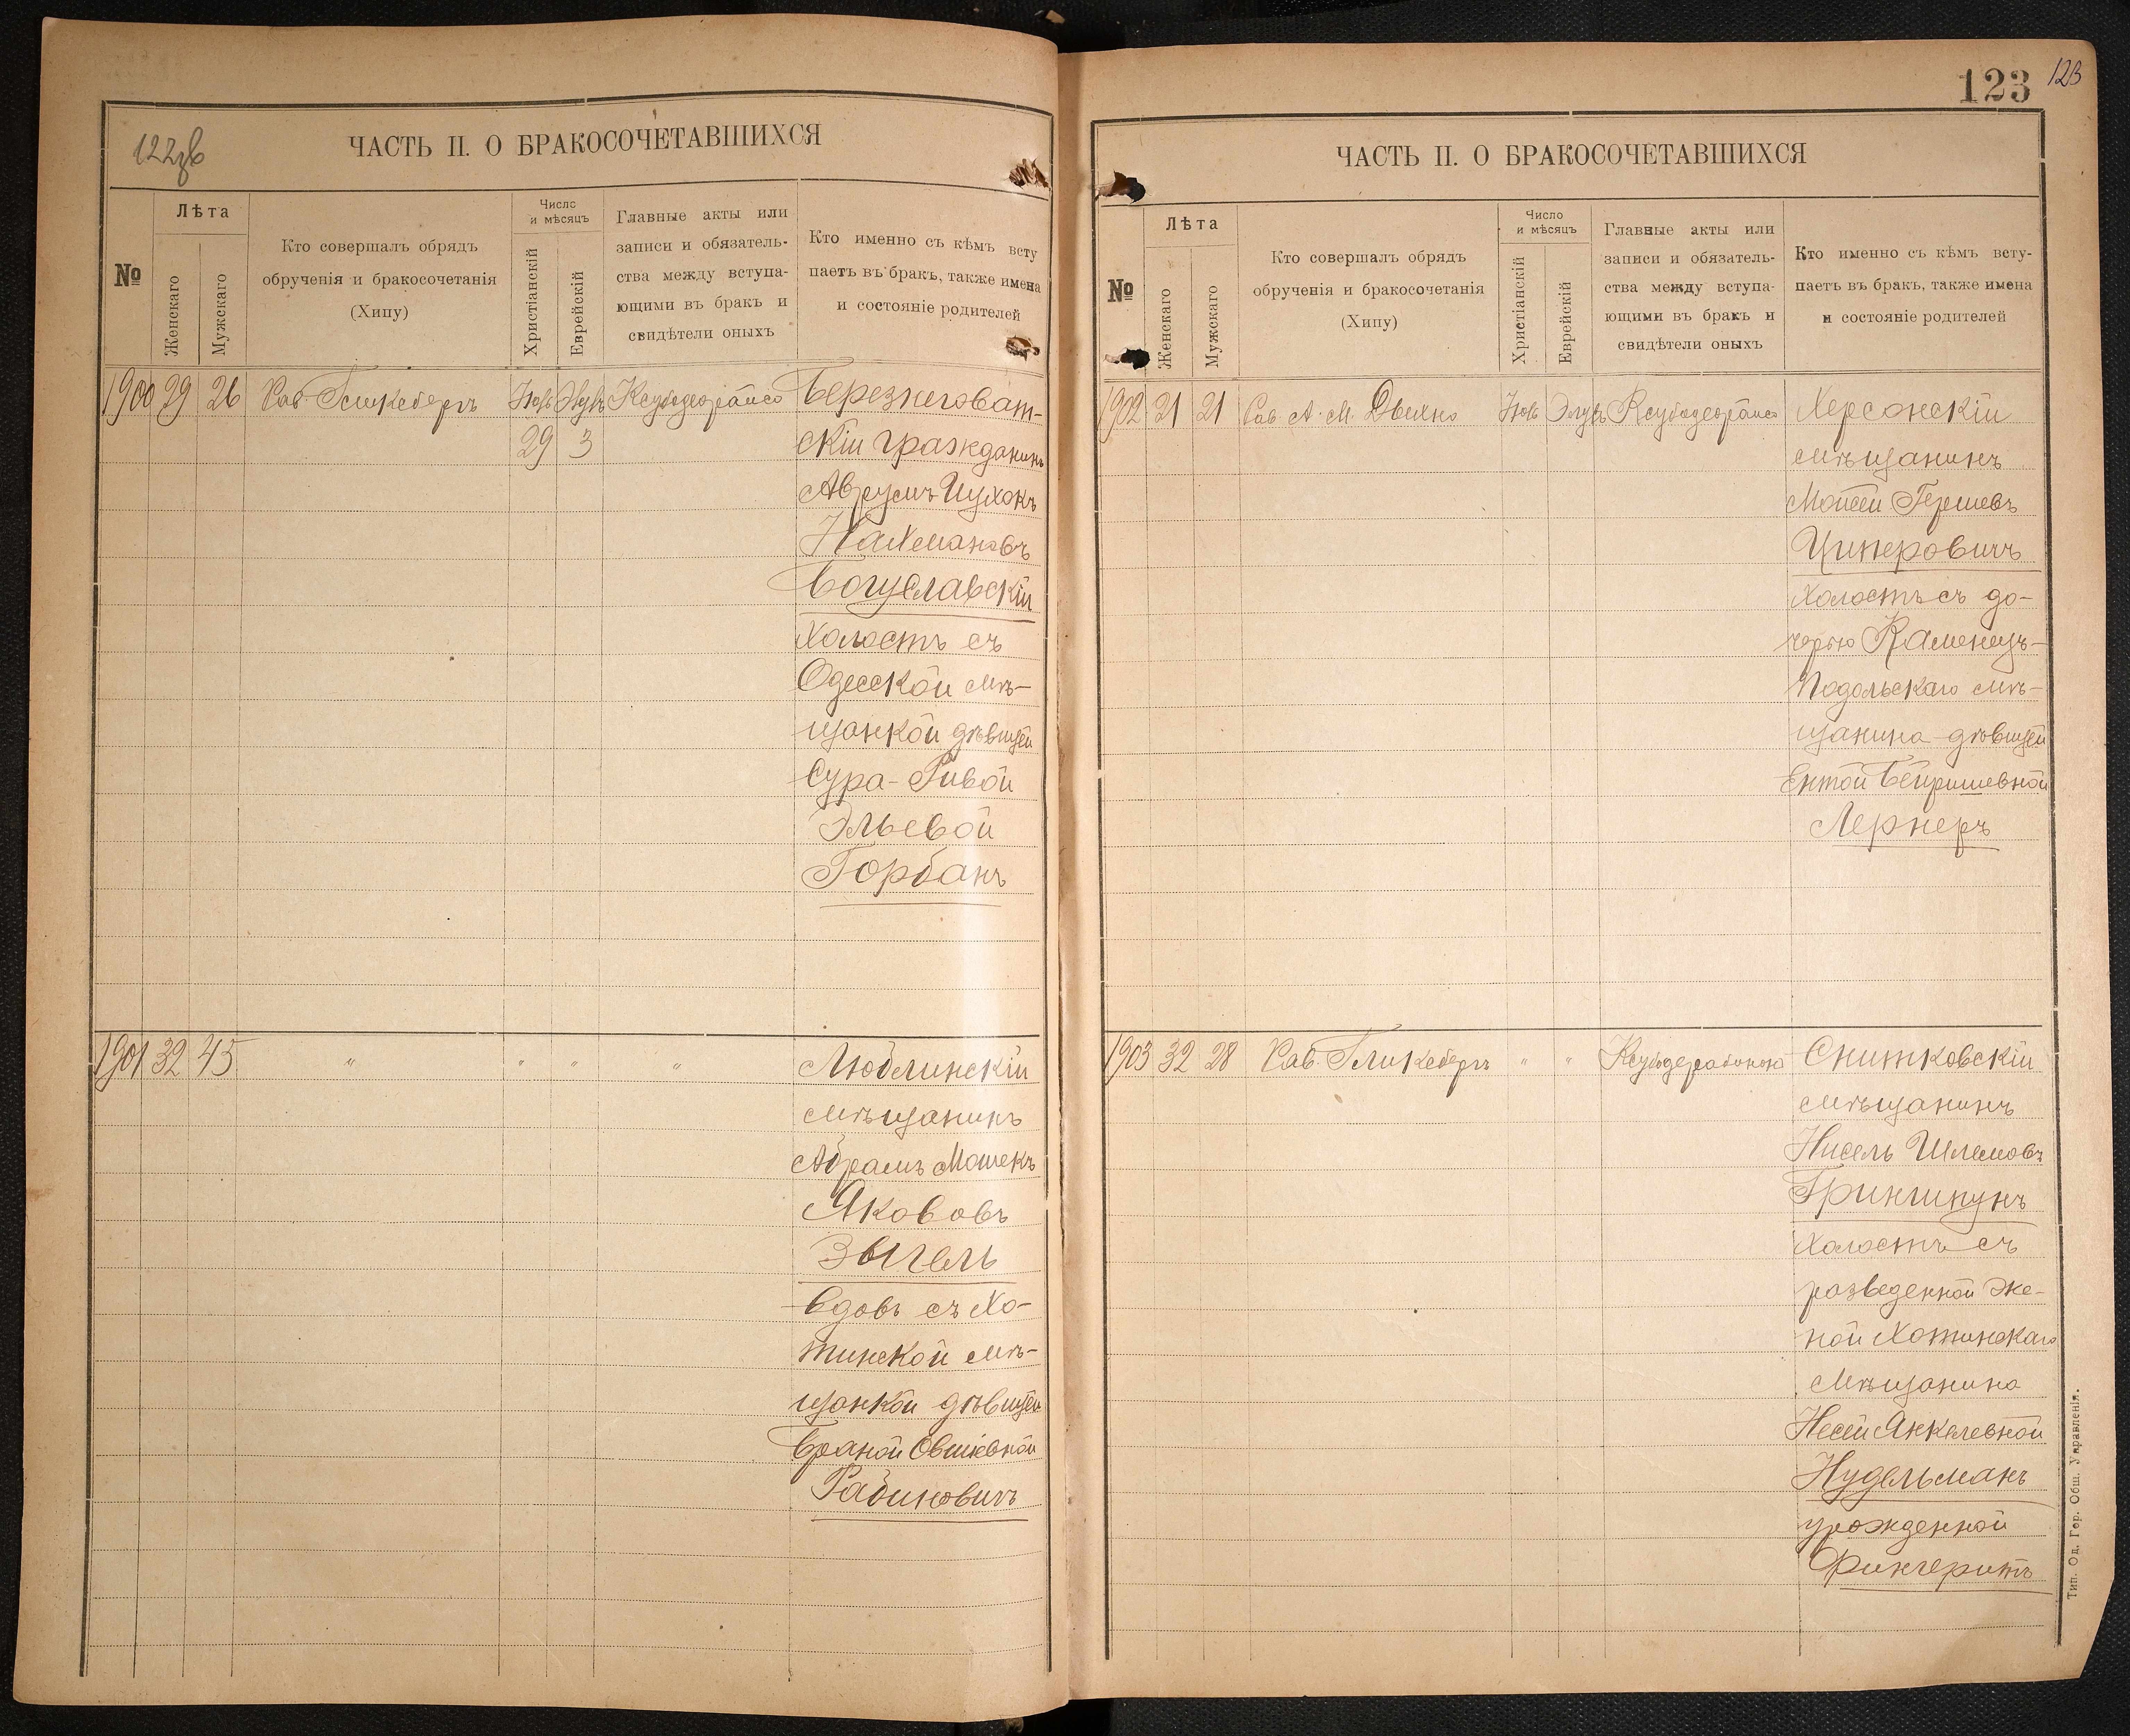 122об
ЧАСТЬ II. О БРАКОСОЧЕТАВШИХСЯ
№
Лѣта
Женскаго
Мужскаго
Кто совершалъ обрядъ
обрученія и бракосочетанія
(Хипу)
Число
и мѣсяцъ
Христіанскій
Еврейскій
Главные акты или
записи и обязатель-
ства между вступа-
ющими въ бракъ и
свидѣтели оныхъ
Кто именно съ кѣмъ всту
паетъ въ бракъ, также имена
и состояніе родителей
1900 29 26 Рав. Гликсбергъ
29 3
Березнеговат-
скій гражданинъ
Аврумъ Ицхокъ
Нахмановъ
Богуславскій
Холостъ съ
Одесской мѣ-
щанкой дѣвицей
Сура-Ривой
Эльевой
Горбанъ
1901 32 45 " " " "
Люблинскій
мѣщанинъ
Абрамъ Мошекъ
Якововъ
Зыгель
Вдовъ съ Хо-
тинской мѣ-
щанкой дѣвицей
Браной Овшіевной
Рабиновичъ
123
123
ЧАСТЬ II. О БРАКОСОЧЕТАВШИХСЯ
№
Лѣта
Женскаго
Мужскаго
Кто совершалъ обрядъ
обрученія и бракосочетанія
(Хипу)
Число
и мѣсяцъ
Христіанскій
Еврейскій
Главные акты или
записи и обязатель-
ства между вступа-
ющими въ бракъ и
свидѣтели оныхъ
Кто именно съ кѣмъ всту-
паетъ въ бракъ, также имена
и состояніе родителей
1902 21 21 Рав. А. М. Двихно
Херсонскій
мѣщанинъ
Мойсей Гершевъ
Циперовичъ
Холостъ съ до-
черью Каменецъ-
Подольскаго мѣ-
щанина дѣвицей
Ентой Бейришевной
Лернеръ
1903 32 28 Рав. Гликсбергъ " "
Снитковскій
мѣщанинъ
Нисель Шлемовъ
Грингипунъ
Холостъ съ
разведенной же-
ной Хотинскаго
Мѣщанина
Несей Янкелевной
Нудельманъ
урожденной
Фингеритъ
Тип. Од. Гор. Общ. Управленія.